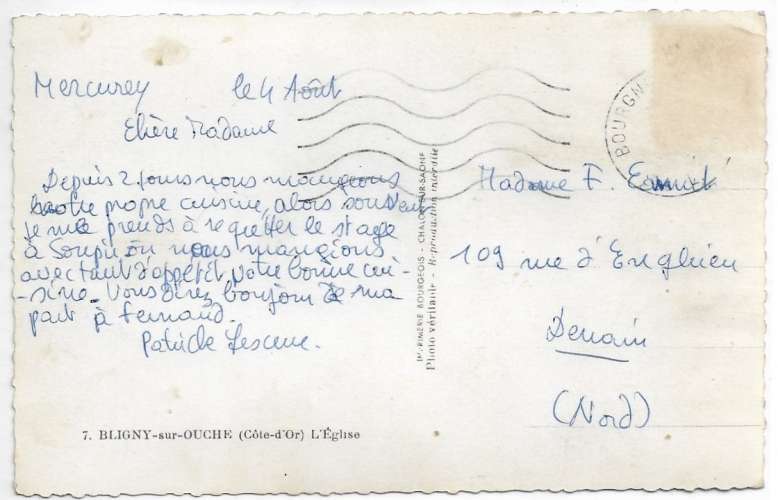 Mercurey le 4 Août
Chère Madame
Depuis 2 jours nous mangeons
notre propre cuisine, alors souvent
je me prends à regretter le stage
à où nous mangions
avec tant d'appétit votre bonne cui-
-sine. Vous direz bonjour de ma
part à Fernand.
Patricle
7. BLIGNY-sur-OUCHE (Côte-d'Or) L'Église
IMPRIMERIE BOURGEOIS - CHALON-SUR-SAONE
Photo véritable - Reproduction interdite
BOURGN
Madame F.
109 rue d'Enghien
Denain
(Nord)